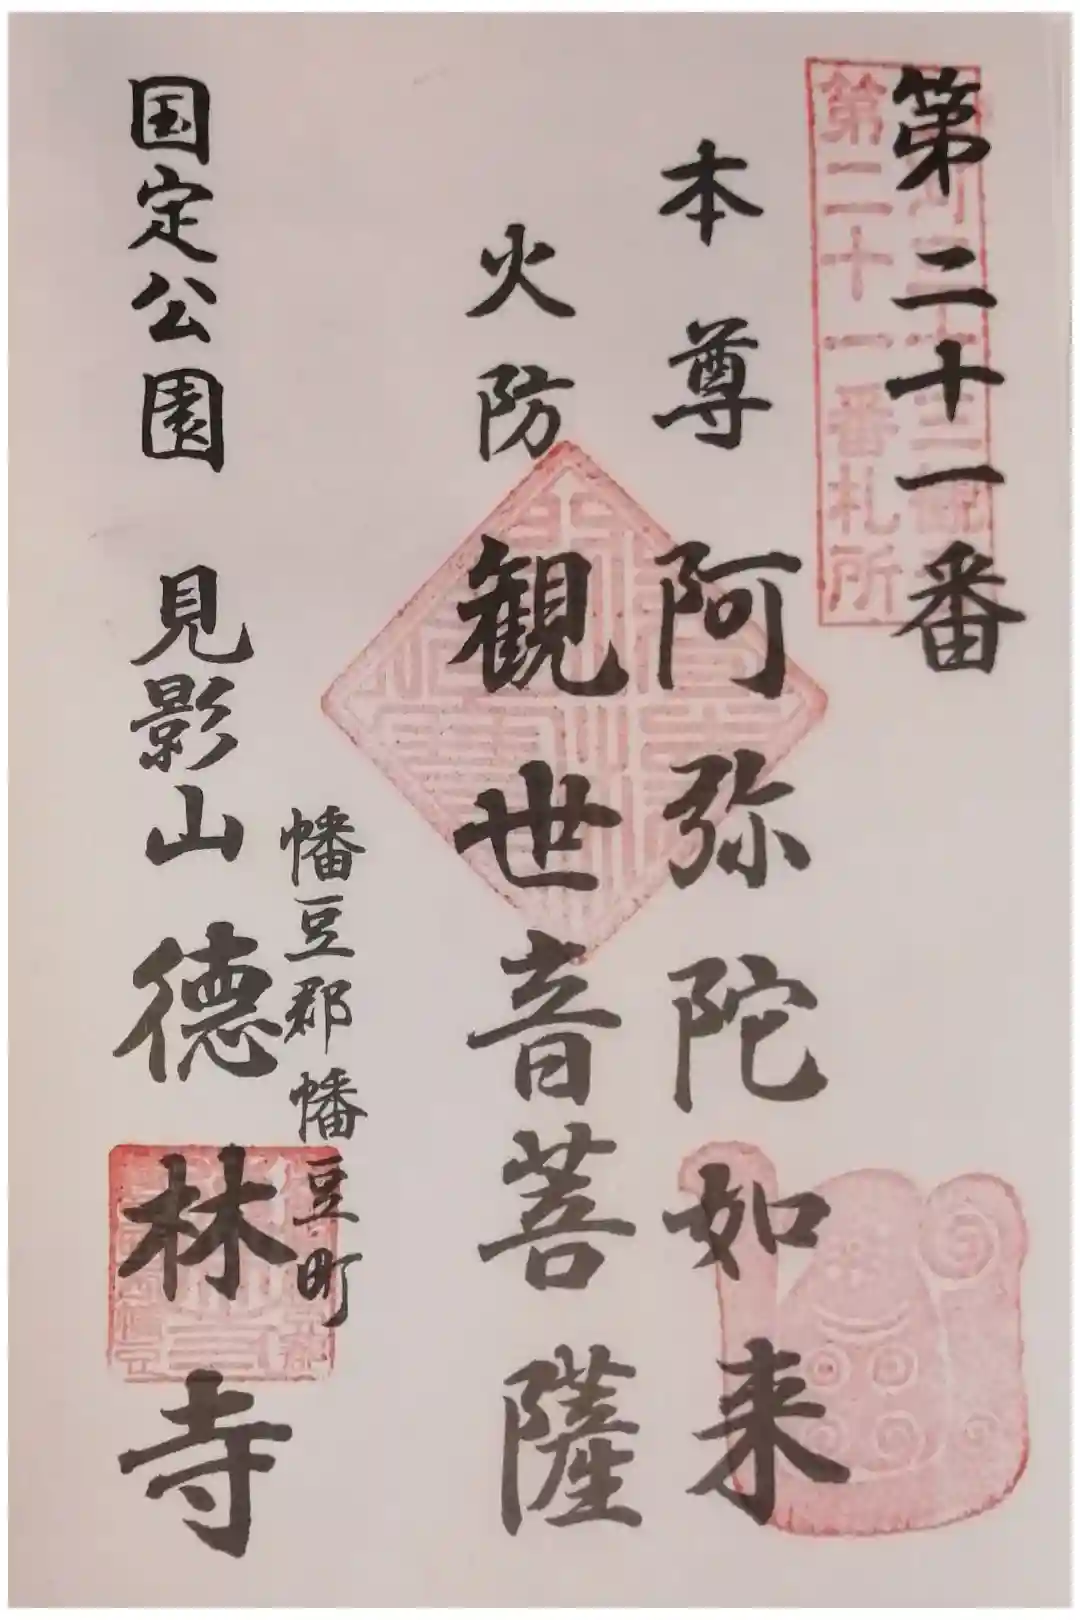 第二十一番
第二十一番札所
本尊 阿弥陀如来
火防 観世音菩薩
幡豆郡幡豆町
国定公園 見影山 德林寺